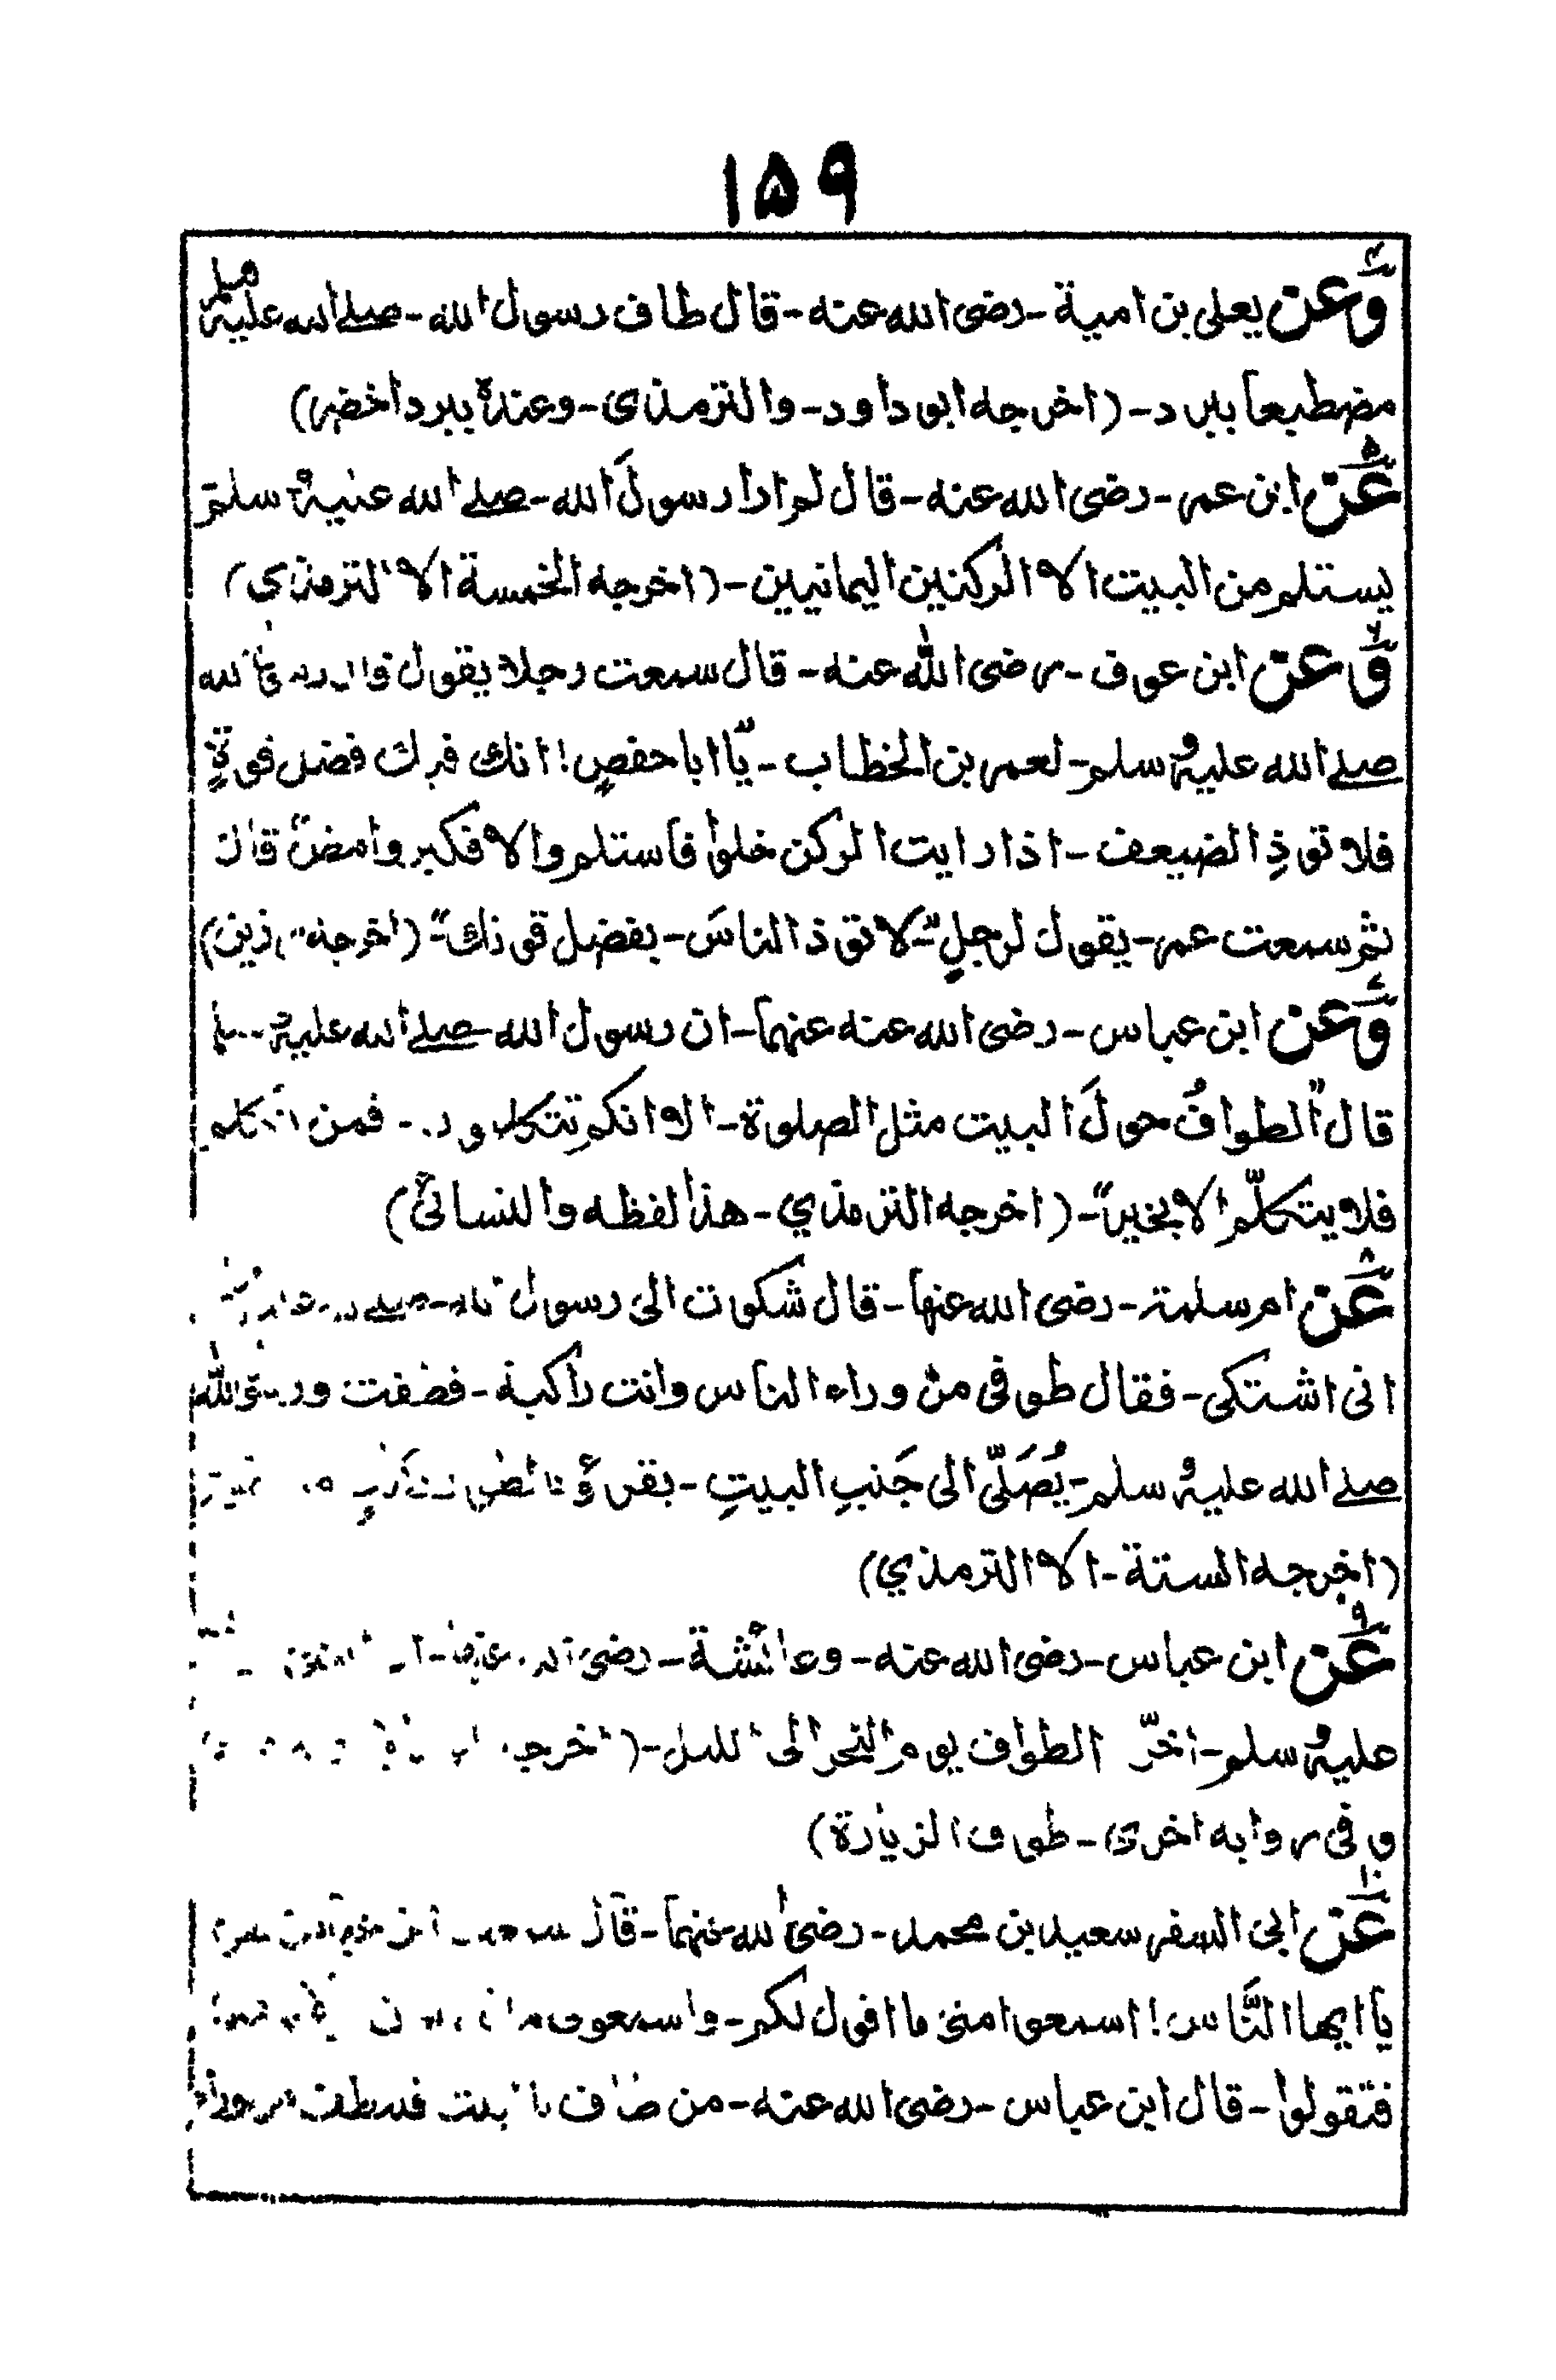 ۱۵۹
۴ وَعن يعلى بن امية - رضى الله عنه - قال طاف رسول الله - صلے الله عليه وسلم
مضطبعا ببرد - (اخرجه ابو داود - والترمذى - وعنده ببرد اخضر)
۵ عَن ابن عمر - رضى الله عنه - قال لم ار رسولَ الله - صلے الله عليه وسلم
يستلم من البيت الا الركنين اليمانيين - (اخرجه الخمسة الا الترمذي)
۶ وَعن ابن عوف - رضى الله عنه - قال سمعت رجلا يقول قال رسول الله
صلے الله عليه وسلم - لعمر بن الخطاب - "يا ابا حفصٍ! انك فيك فضل قوةٍ
فلا توذِ الضيعف - اذا رايت الركن خلوا فاستلم والا فكبر وامض" قال
ثم سمعت عمر - يقول لرجلٍ - "لا توذ الناسَ - بفضل قوتك" - (اخرجه رزين)
۷ وَعن ابن عباس - رضى الله عنه عنهما - ان رسول الله صلے الله عليه وسلم
قال "الطوافُ حولَ البيت مثل الصلوة - الا انكم تتكلمون - فمن تكلم
فلا يتكلّم الا بخير" - (اخرجه الترمذي - هذا لفظه والنسائى)
۸ عَن ام سلمة - رضى الله عنها - قال شكوت الى رسول الله - صلے
انى اشتكى - فقال طوفى من وراء الناس وانت راكبة - فطفت ورسول الله
صلے الله عليه وسلم - يُصَلّى الى جَنبِ البيتِ - يقرؤ
(اخرجه الستة - الا الترمذي)
۹ عَن ابن عباس - رضى الله عنه - وعائشة - رضى الله عنها -
عليه وسلم - اخّر الطواف يوم النحر الى الليل - (اخرجه
و فى رواية اخرى - طواف الزيارة)
۱۰ عَن ابى السفر سعيد بن محمد - رضى الله عنهما - قال
يا ايها النَّاس! اسمعوا منى ما اقول لكم - واسمعونى
فتقولوا - قال ابن عباس - رضى الله عنه - من طاف بالبيت فليطف